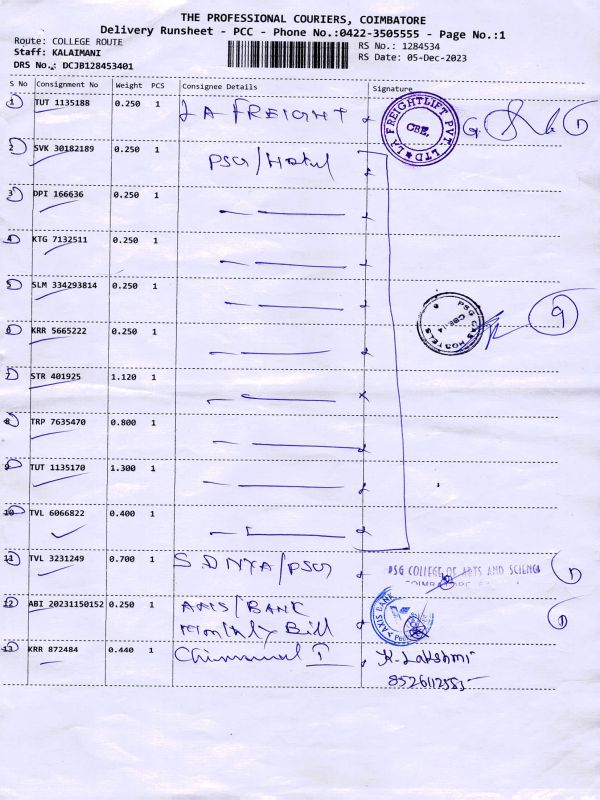 THE PROFESSIONAL COURIERS, COIMBATORE
Delivery Runsheet - PCC - Phone No.:0422-3505555 - Page No.:1
Route: COLLEGE ROUTE
Staff: KALAIMANI
DRS No.: DCJB128453401
RS No.: 1284534
RS Date: 05-Dec-2023
S No Consignment No Weight PCS Consignee Details Signature
1 TUT 1135188 0.250 1 LA FREIGHT
LA FREIGHTLIFT PVT. LTD
CBE.
2 SVK 30182189 0.250 1 PSG/Hotel
3 DPI 166636 0.250 1
4 KTG 7132511 0.250 1
5 SLM 334293814 0.250 1
PSG CAS HOSTELS
CBE-14
9
6 KRR 5665222 0.250 1
7 STR 401925 1.120 1
8 TRP 7635470 0.800 1
9 TUT 1135170 1.300 1
10 TVL 6066822 0.400 1
11 TVL 3231249 0.700 1 /PSG
PSG COLLEGE OF ARTS AND SCIENCE
12 ABI 20231150152 0.250 1 AXIS/BANK
Monthly Bill
AXIS BANK
13 KRR 872484 0.440 1
K. Lakshmi